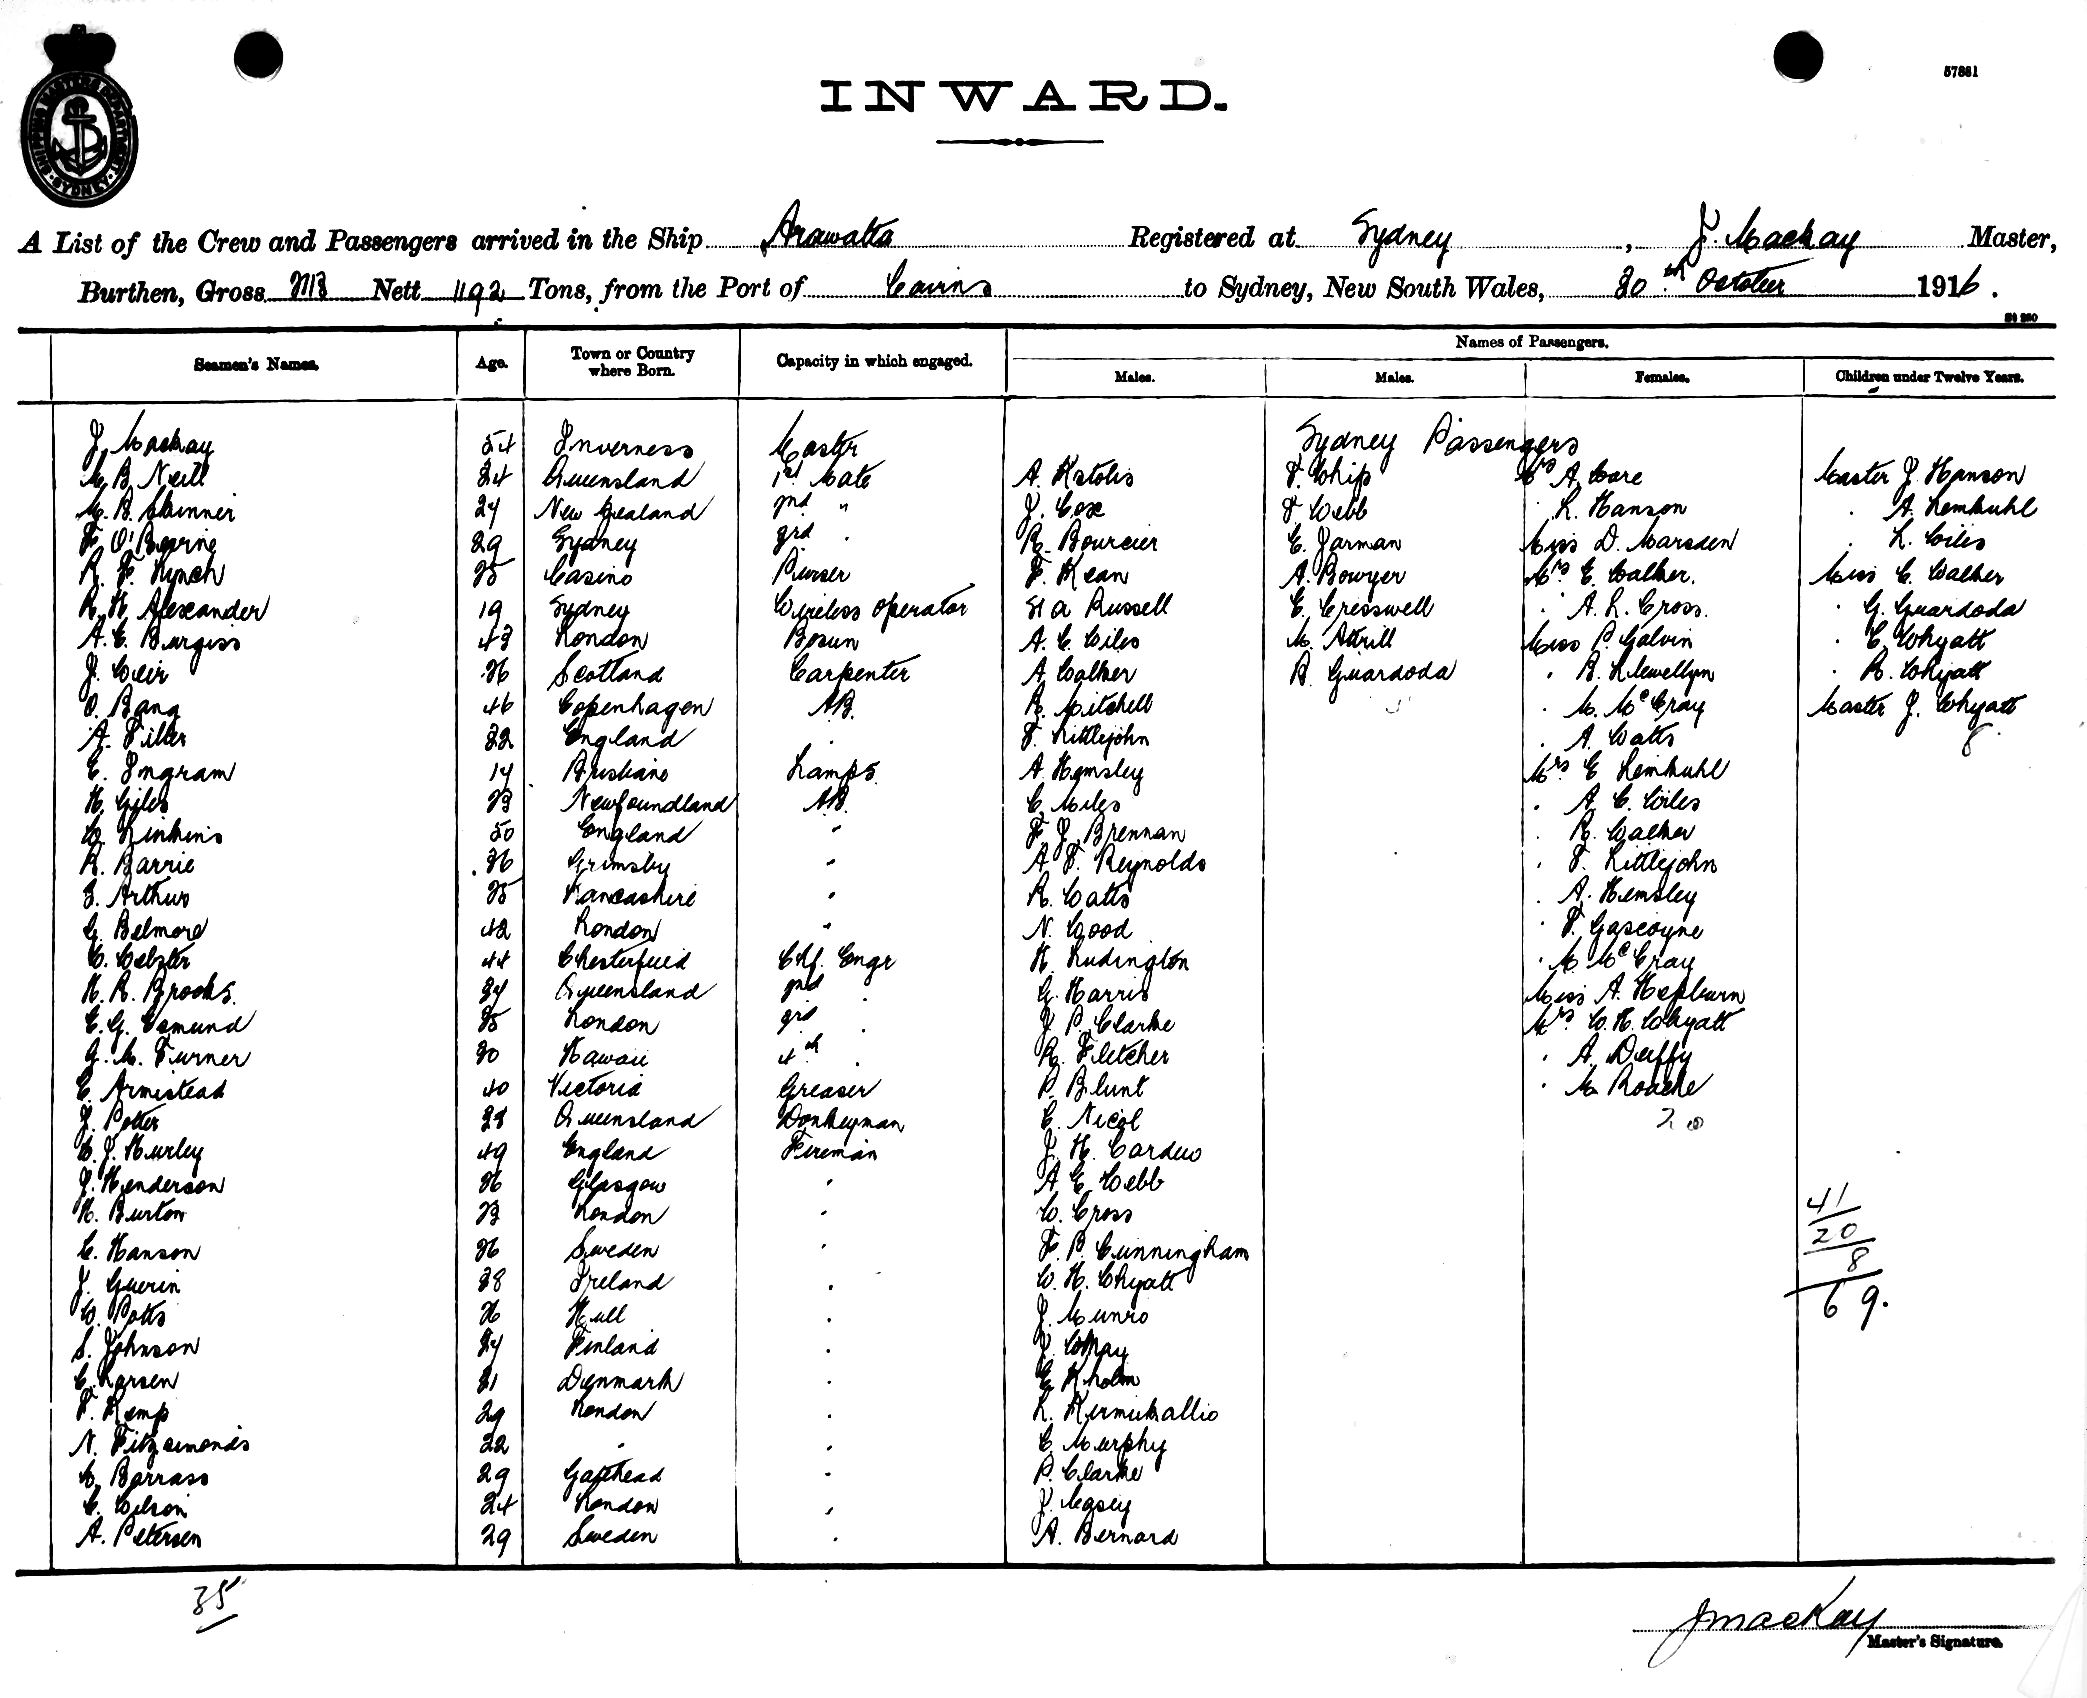 57881
INWARD.
SHIPPING MASTERS DEPARTMENT SYDNEY
A List of the Crew and Passengers arrived in the Ship Arawatta Registered at Sydney, J. Mackay Master,
Burthen, Gross Nett 1192 Tons, from the Port of Cairns to Sydney, New South Wales, 30th October 1916.
Seamen's Names. Age. Town or Country where Born. Capacity in which engaged. Names of Passengers.
Males. Males. Females. Children under Twelve Years.
Sydney Passengers
J. Mackay 54 Inverness Master
M. B. Neill 34 Queensland 1st Mate A. Kstolis F. Whip Mrs A. Ware Master J. Hanson
M. B. Skinner 27 New Zealand 2nd " J. Cox F Webb " L. Hanson " A. Lemkuhl
F. O'Beirne 29 Sydney 3rd " R. Bourcier C. Jarman Miss D. Marsden " L. Wiles
R. F. Lynch 25 Casino Purser F. Kean A. Bowyer Mrs E. Walker. Miss C. Walker
R. H. Alexander 19 Sydney Wireless Operator Russell C. Cresswell " A. L. Cross. " G. Guardoda
A. C. Burgess 43 London Bosun A. C. Wiles M. Attrill Miss P. Galvin " C. Whyatt
J. Weir 26 Scotland Carpenter A. Walker R. Guardoda " R. Llewellyn " R. Whyatt
O. Bang 46 Copenhagen AB. R. Mitchell " M. McCray Master J. Whyatt
A. Filler 32 England " F. Littlejohn " A. Watts 8
C. Ingram 17 Brisbane Lamps. A. Hemsley Mrs C Lemkuhl
H. Giles 23 Newfoundland AB. C. Miles " A. C. Wiles
W. Linkins 50 England " F. J. Brennan " R. Walker
R. Barrie 36 Grimsby " A. F. Reynolds " F. Littlejohn
J. Arthur 25 Lancashire " R. Watts " A. Hemsley
G. Belmore 42 London " N. Wood " F. Gascoyne
C. Webster 44 Chesterfield Chf. Engr H. Ludington " M McCray
H. R. Brooks. 37 Queensland 2nd " G. Harris Miss A. Hepburn
C. G. Osmund 25 London 3rd " J. P. Clarke Mrs W. H. Whyatt
G. M. Turner 30 Hawaii 4th " R. Fletcher " A. Duffy
C. Armistead 40 Victoria Greaser P. Blunt " M Roache
J. Potter 28 Queensland Donkeyman C. Nicol 20
C. J. Hurley 49 England Fireman J. H. Cardew
J. Henderson 26 Glasgow " A. E. Webb
H. Burton 23 London " W. Cross 41
C. Hanson 26 Sweden " F. P. Cunningham 20
J. Guerin 38 Ireland " W. H. Whyatt 8
W. Potts 26 Hull " J. Munro 69.
S. Johnson 27 Finland " J. Whay
C. Larsen 31 Denmark " E. Kholm
F. Kemp 29 London " L.
N. Fitzsimonds 22 " " C. Murphy
M. Barrass 29 Gateshead " P. Clarke
C. Wilson 24 London " J. Casey
A. Petersen 29 Sweden " A. Bernard
35
J Mackay
Master's Signature.